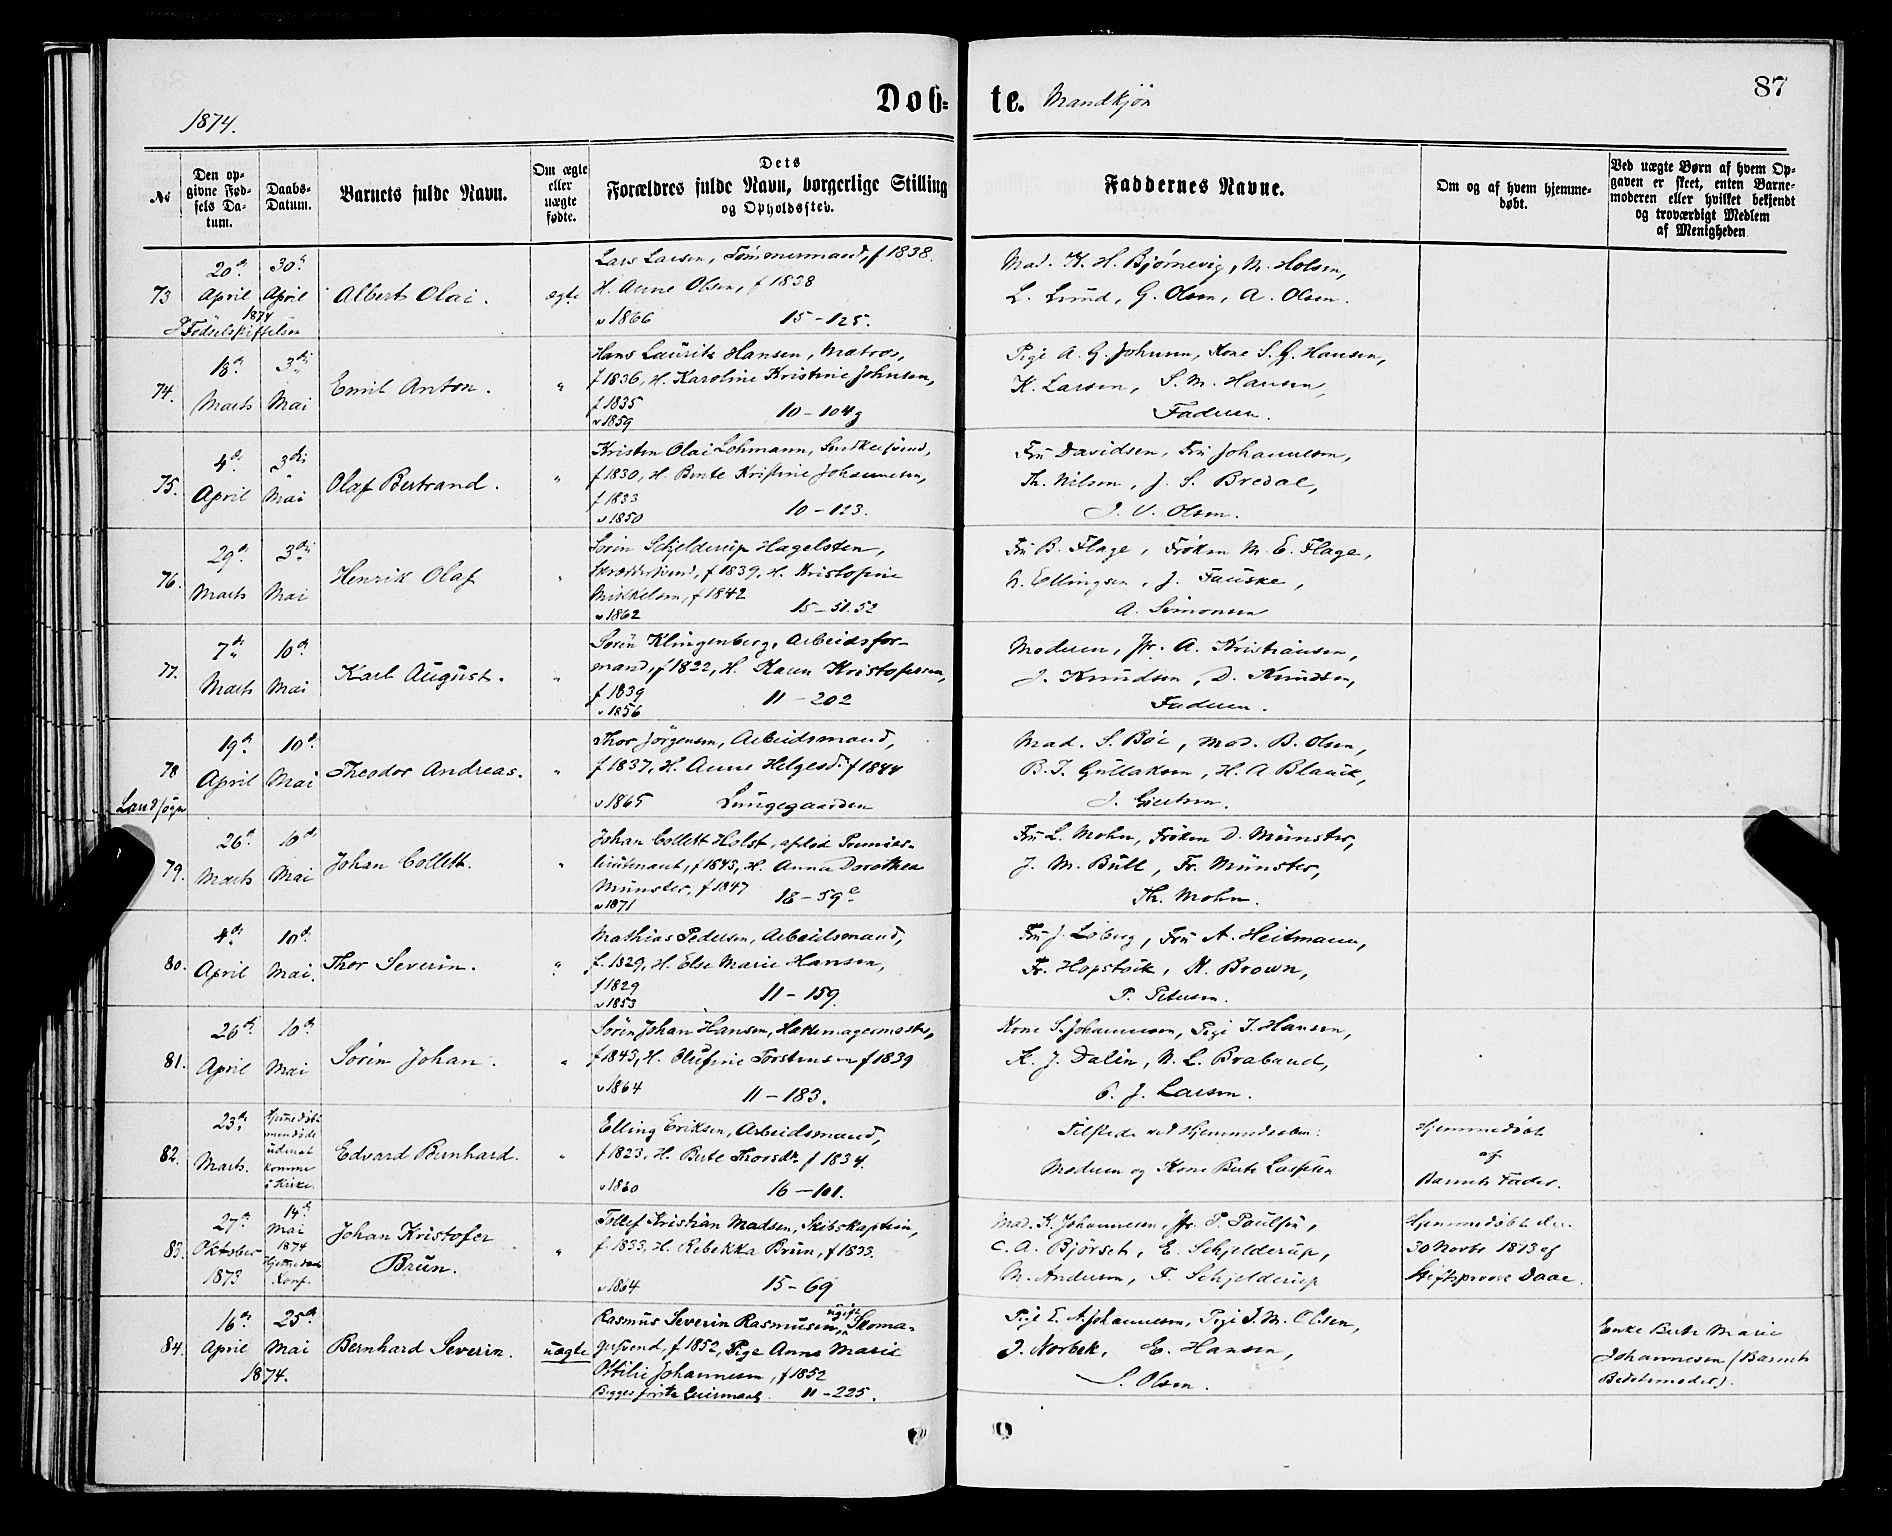 1874.
Døb- te. Mandkjøn
87
No
Den opgivne Fødsels Datum.
Daabs-Datum.
Barnets fulde Navn.
Om ægte eller uægte fødte.
Dets Forældres fulde Navn, borgerlige Stilling og Opholdssted.
Faddernes Navne.
Om og af hvem hjemmedøbt.
Ved uægte Børn af hvem Opgaven er skeet, enten Barnemoderen eller hvilket bekjendt og troværdigt Medlem af Menigheden
20de 30te Lars Larsen, Tømmermand, f 1838. Mad. K. H. Bjørnevig, M. Holsen,
73 April April Albert Olai. ægte H. Anne Olsen, f 1838 L. Lund, G. Olsen, A. Olsen.
1874
Fødselsstiftelsen v 1866 15-125.
18de 3die Hans Lauritz Hansen, Matros, Pige A. G. Johnsen, Kone S. G. Hansen,
74. Marts Mai Emil Anton. " f 1836, H. Karoline Kristine Johnsen, K. Larsen, S. M. Hansen,
f 1835 10-104g Faderen.
v 1859
4de 3die Kristen Olai Lohmann, Snedkersvend, Fru Davidsen, Fru Johannesen,
75. April Mai Olaf Bertrand. " f 1830, H. Bente Kristine Johannesen, Th. Nilsen, J. S. Bredal,
f 1833
v 1850 10-123. J. V. Olsen.
29de 3die Sørin Schjelderup Hagelsten, Fru B. Flage, Frøken M. E. Flage,
76. Marts Mai Henrik Olaf " Skræddersvend, f 1839, H. Kristofine N. Ellingsen, J. Fauske,
Mikkelsen, f 1842 15-51.52 A. Simonsen
v 1862
7de 10de Sørin Klingenberg, Arbeidsfor- Moderen, Jfr. A. Kristiansen,
77. Marts Mai Karl August. " mand, f 1822, H. Karen Kristofersen, J. Knudsen, D. Knudsen,
f 1839 11-202 Faderen.
v 1856
19de 10de Thor Jørgensen, Arbeidsmand, Mad. S. Bøe, Mad. B. Olsen,
78 April Mai Theodor Andreas. " f 1837, H. Anne Helgesd. f 1844 B. T. Gullaksen, H. A Blauck,
Landsogn v 1865 Lungegaarden J. Gjertsen.
26de 10de Johan Collett Holst, afsked Premier- Fru L. Mohn, Frøken D. Münster,
79. Marts Mai Johan Collett. " lieutenant, f 1843, H. Anna Dorothea J. M. Bull, Fr. Münster,
Münster, f 1847 18-59e Th. Mohn.
v 1871
4de 10de Mathias Pedersen, Arbeidsmand, Fru J. Loberg, Fru A. Heitmann,
80. April Mai. Thor Severin. " f. 1829, H. Else Marie Hansen, Fr. Hopstock, K. Brown,
f 1829
v 1853 11-159. P. Petersen.
26de 10de Sørin Johan Hansen, Hattemagermester, Kone S. Johannesen, Pige J. Hansen,
81. April Mai Sørin Johan. " f 1843, H. Olufine Torstensen f 1839 K. J. Dalin, N. L. Braband,
v 1864 11-183. C. J. Larsen.
23de Hjemmedøbt Elling Eriksen, Arbeidsmand, Tilstede ved Hjemmedaaben: Hjemmedøbt
82. Marts. men døde uden at komme i Kirke. Edvard Bernhard. " f 1823, H. Berte Thorsdt. f 1834. Moderen og Kone Berte Larsen af
v 1860 16-101. Barnets Fader.
27de 14de Tollef Kristian Madsen, Skibskaptein, Mad. K. Johannesen, Jfr. P. Poulsen, Hjemmedøbt den
83. Oktober Mai 1874 Johan Kristofer " f. 1833, H. Rebekka Brun, f 1833. C. A. Bjørset, E. Schjelderup, 30 Novbr 1873 af
1873 Hjemmedaab Konf. Brun. v 1864 15-69 M. Andersen, F. Schjelderup Stiftsprovst Daae.
16de 25de Rasmus Severin Rasmussen, ugift Skoma- Pige E. A. Johannesen, Pige J. M. Olsen, Enke Berte Marie
84. April Mai Bernhard Severin. uægte gersvend, f 1852, Pige Anne Marie J. Norbek, E. Hansen, Johannesen (Barnets
1874. Ottilie Johannesen, f 1852 S. Olsen. Bedstemoder).
Begges første Leiermaal 11-225.